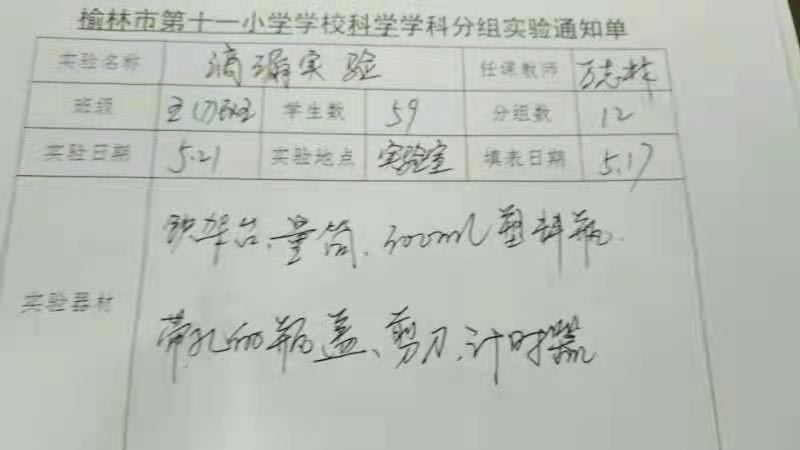 榆林市第十一小学学校科学学科分组实验通知单
实验名称 滴漏实验 任课教师 万志林
班级 五(7)班 学生数 59 分组数 12
实验日期 5.21 实验地点 实验室 填表日期 5.17
实验器材
铁架台、量筒、500ml塑料瓶
带孔的瓶盖、剪刀、计时器